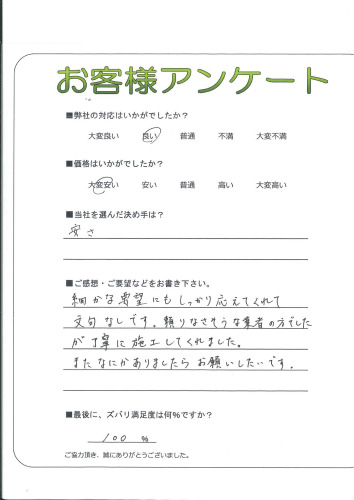 お客様アンケート
■弊社の対応はいかがでしたか？
大変良い 良い 普通 不満 大変不満
■価格はいかがでしたか？
大変安い 安い 普通 高い 大変高い
■当社を選んだ決め手は？
安さ
■ご感想・ご要望などをお書き下さい。
細かな要望にもしっかり応えてくれて
文句なしです。頼りなさそうな業者の方でした
が丁寧に施工してくれました。
またなにかありましたらお願いしたいです。
■最後に、ズバリ満足度は何%ですか？
100 %
ご協力頂き、誠にありがとうございました。